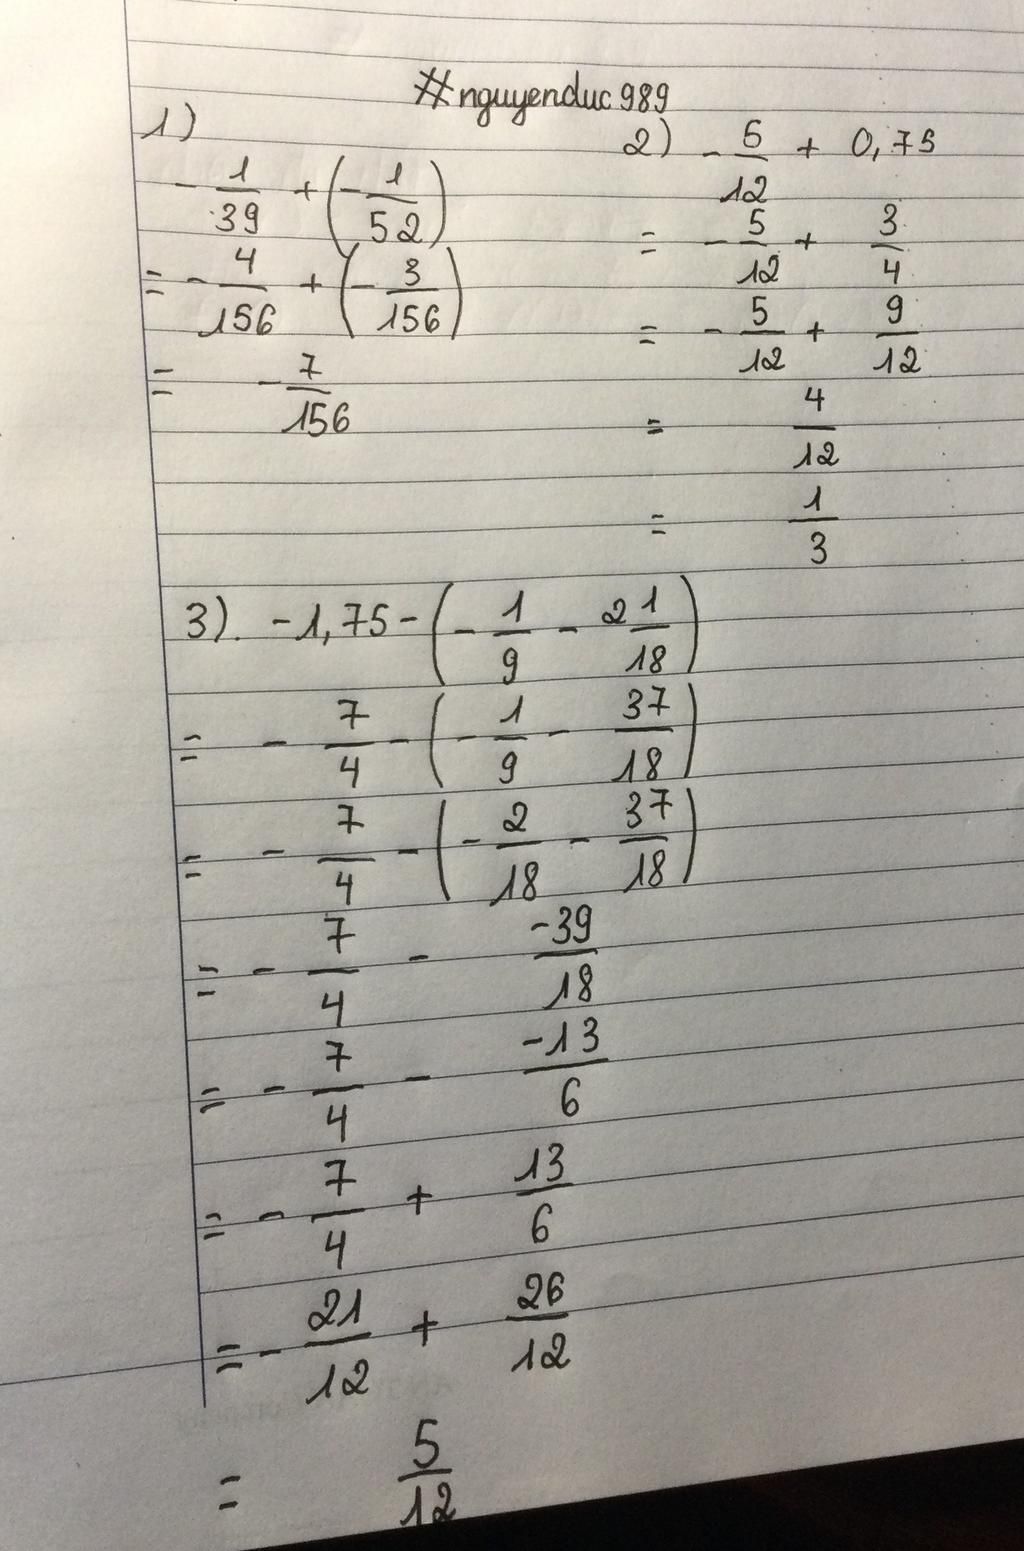 #nguyenduc989
1)
- 1/39 + (- 1/52)
= - 4/156 + (- 3/156)
= - 7/156
2) - 5/12 + 0,75
= - 5/12 + 3/4
= - 5/12 + 9/12
= 4/12
= 1/3
3). -1,75 - (- 1/9 - 2 1/18)
= - 7/4 - (- 1/9 - 37/18)
= - 7/4 - (- 2/18 - 37/18)
= - 7/4 - -39/18
= - 7/4 - -13/6
= - 7/4 + 13/6
= - 21/12 + 26/12
= 5/12